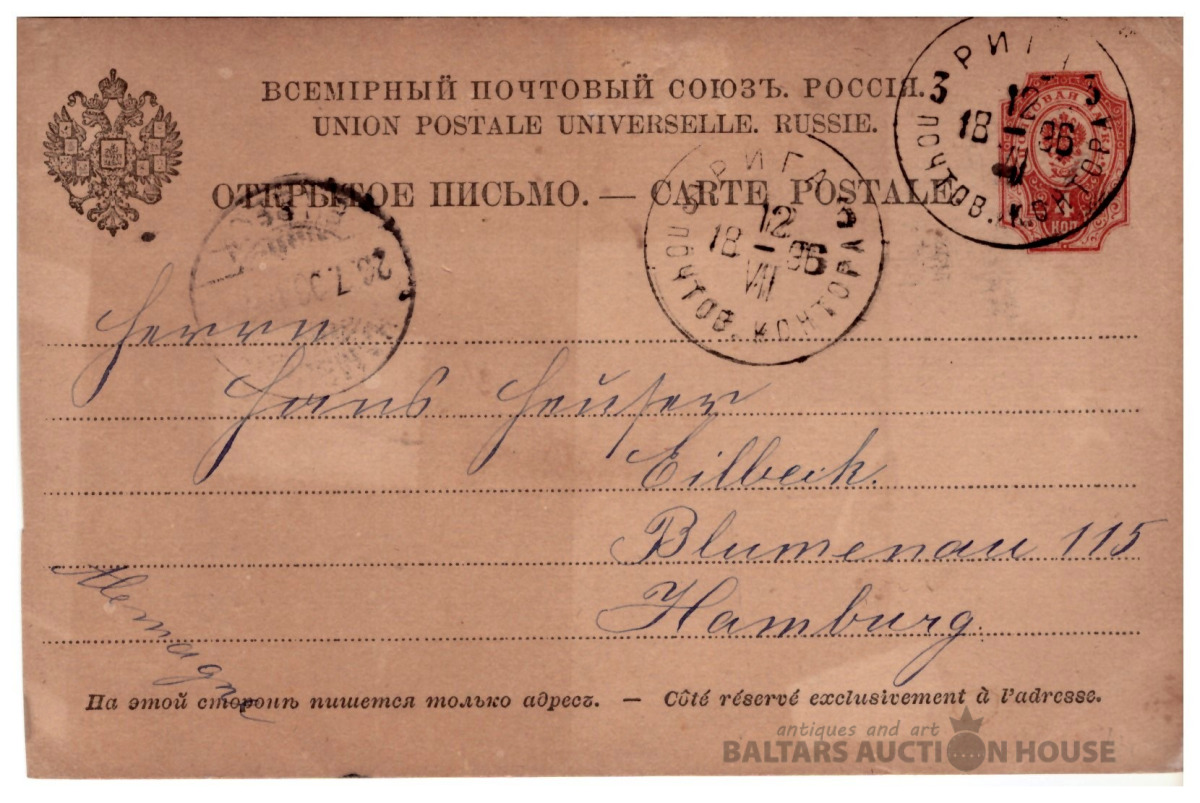 ВСЕМІРНЫЙ ПОЧТОВЫЙ СОЮЗЪ. РОССІЯ.
UNION POSTALE UNIVERSELLE. RUSSIE.
ОТКРЫТОЕ ПИСЬМО. — CARTE POSTALE.
3 РИГА 3
12
18 — 96
VII
ПОЧТОВ. КОНТОРА
3 РИГА 3
12
18 — 96
VII
ПОЧТОВ. КОНТОРА
4
КОП
Herrn
Hans Heuser
Eilbeck.
Blumenau 115
Hamburg.
Allemagne
На этой сторонѣ пишется только адресъ. — Côté réservé exclusivement à l'adresse.
antiques and art
BALTARS AUCTION HOUSE